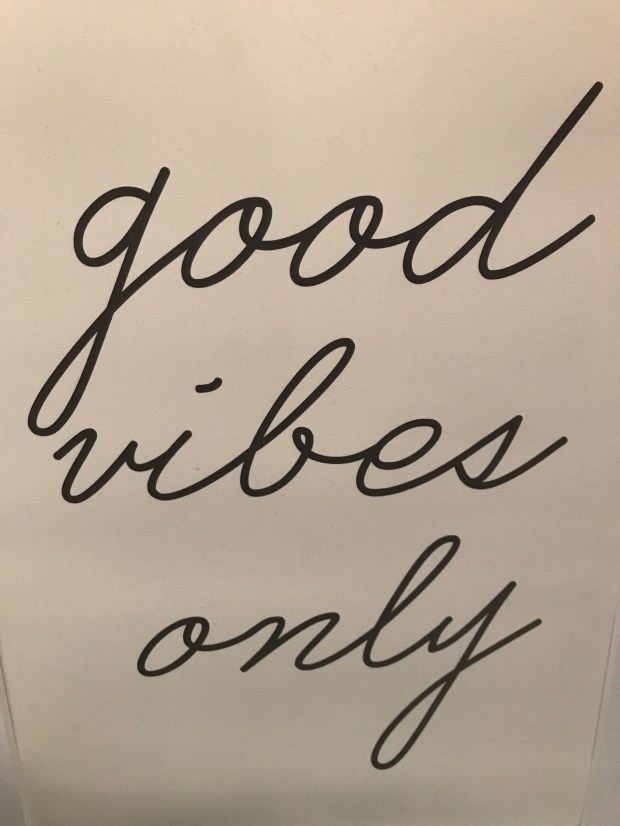 good
vibes
only